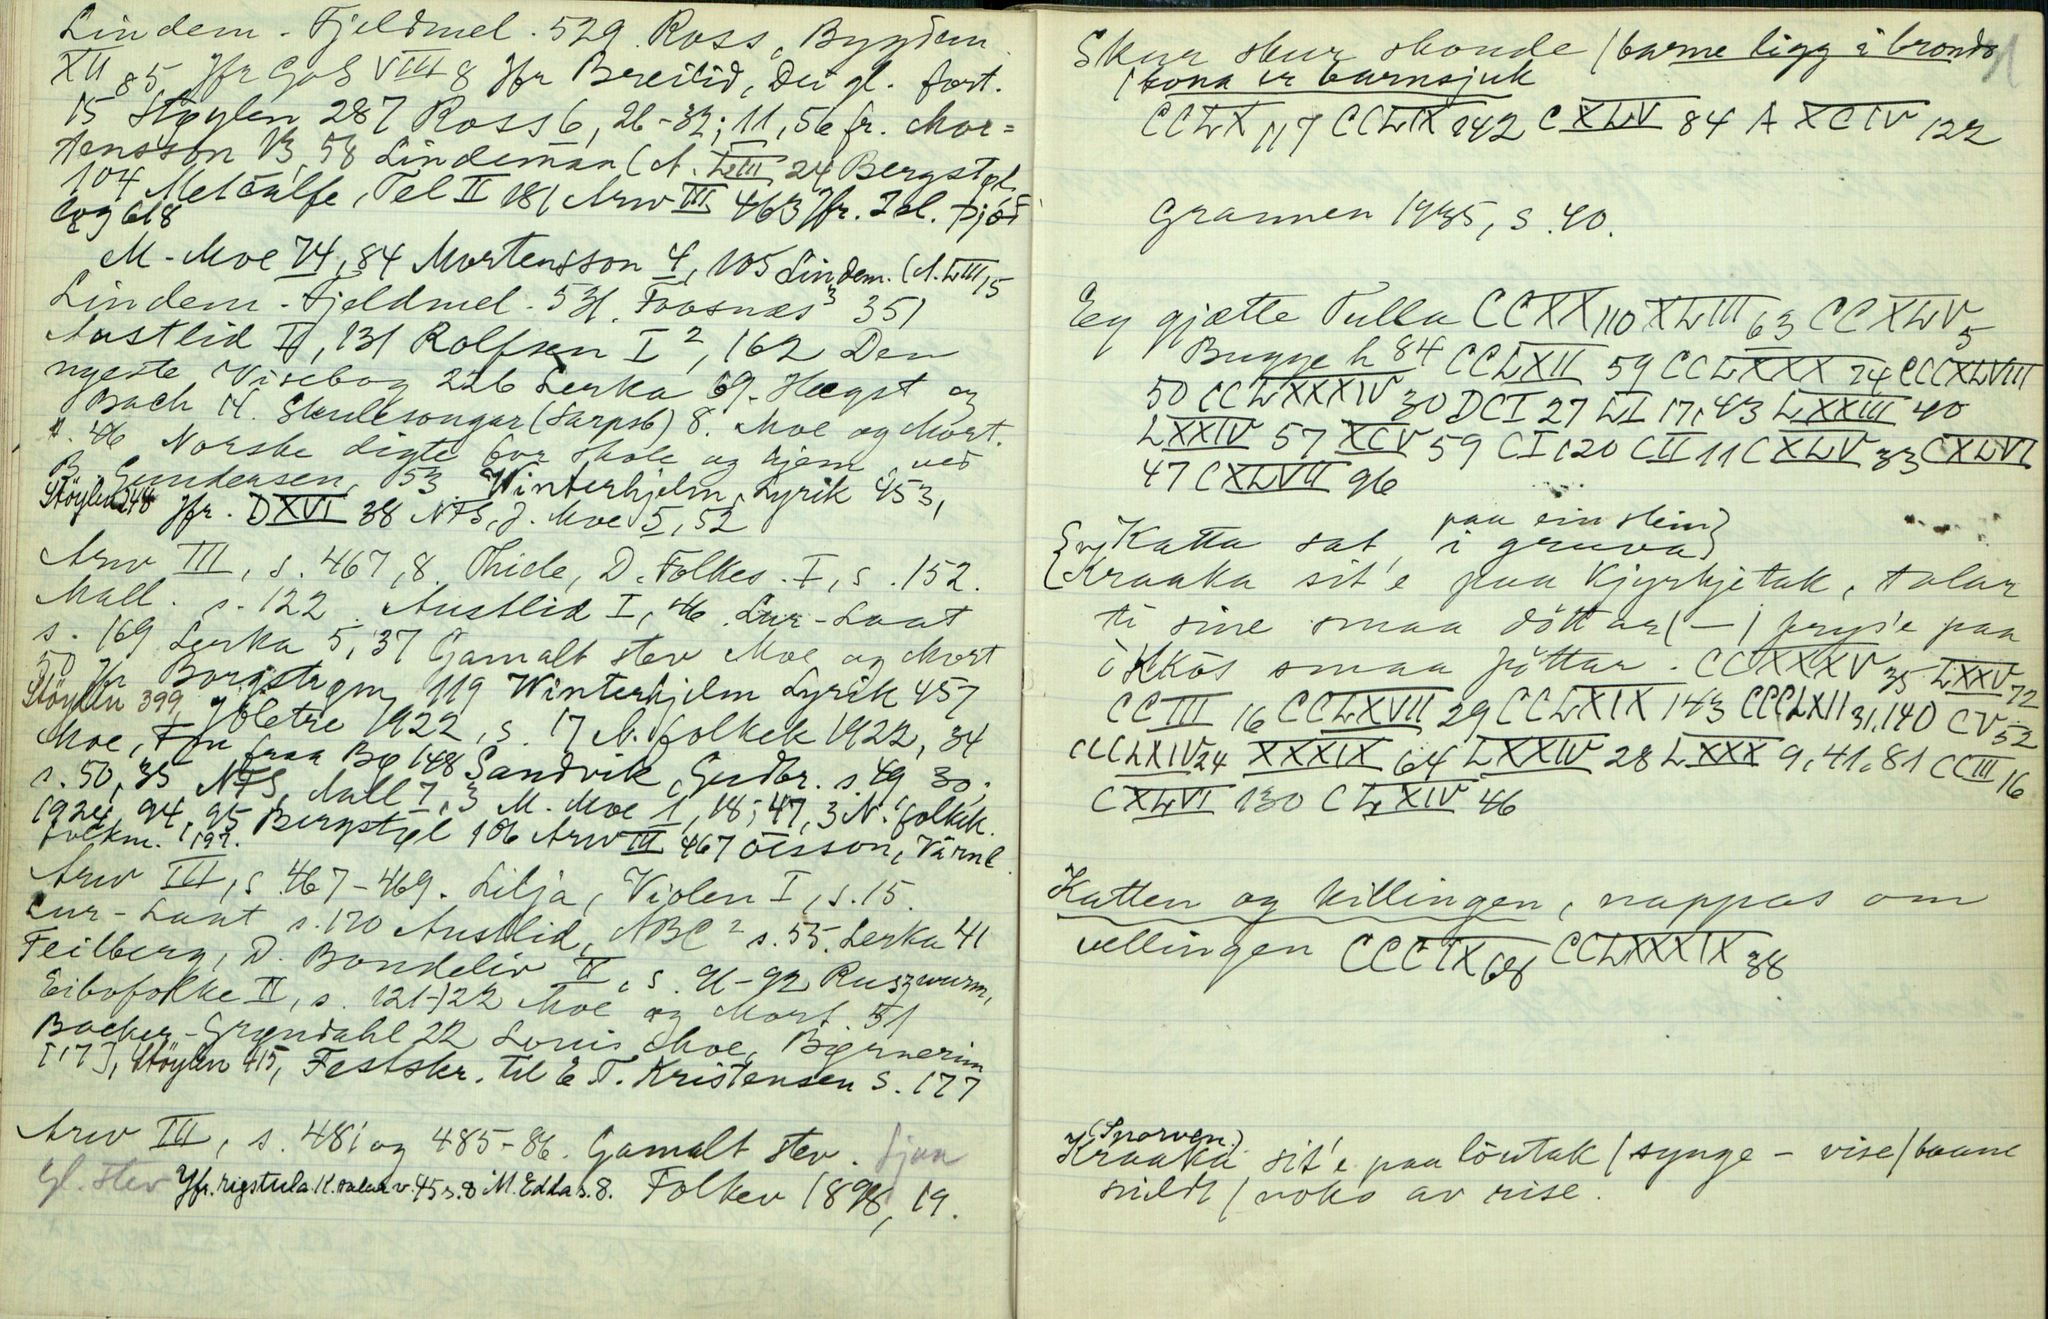 Lindem. Fjeldmel. 529. Ross, Bygdem.
XII 85 Jfr GaS VIII 8 Jfr Breilid, Dei gl. fort.
15 Støylen 287 Ross 6, 26-32; 11, 56 fr. Mor=
tensson 13, 58 Lindeman (N. LIII 24 Bergstøl
104 Metcalfe, Tel II 181 Arw III 463 Jfr. Isl. þjóð
log 618
M. Moe 74, 84 Mortensson 4, 105 Lindem. (N. LIII, 15
Lindem. Fjeldmel. 531. Foosnæs 3 351
Austlid II, 131 Rolfsen I 2, 162 Den
nyeste Visebog 226 Lerka 69. Hægst og
Bach N. Skulesongar (Sarpsb) 8. Moe og Mort.
s. 46 Norske digte for skole og hjem ved
B. Gundersen, 153. Winterhjelm, Lyrik 453,
Støylen 248 Jfr. DXVI 38 NFS, J. Moe 5, 52
Arw III, s. 467, 8. Thiele, D. Folkes. I, s. 152.
Mall. s. 122. Austlid I, 46. Lur-Laat
s. 169 Lerka 5, 37 Gamalt stev Moe og Mort
50 Jfr Borgstrøm, 119 Winterhjelm Lyrik 457
Støylen 399, 1922, s. 17 N. folkek 1922, 34
Moe, fraa Bø 148 Sandvik, Gudbr. s. 49, 30;
s. 50, 35 NFS, Aall 7, 3 M. Moe 1, 18; 47, 3 N. folkek.
1924, 94, 95 Bergstøl 106 Arw III 467 Olsson, Värml.
folkm. 197.
Arw III, s. 467-469. Lilja, Violen I, s. 15.
Lur-Laat s. 170 Austlid, ABC 2 s. 55. Lerka 41
Feilberg, D. Bondeliv II, s. 91-92 Ruszwurm,
Eibofolke II, s. 121-122 Moe og Mort. 51
Backer-Grøndahl 22 Louis Moe, Børnerim
[17], Støylen 415, Festskr. til E. T. Kristensen s. 177
Arw III, s. 481 og 485-86. Gamalt stev. Sjaa
gl. stev Jfr. rigstula K. v. 45 s. 8 M. Edda s. 8. Folkev 1898, 19.
Skur skur skonde / barne ligg i bronde
/ kona er barnsjuk
CCLX 117 CCLIX 242 CXLV 84 A XCIV 122
Grannen 1935, s. 40.
Eg gjætte Tulla CCXX 110 XLIII 63 CCXLV 5
Bugge h 84 CCLXII 59 CCLXXX 24 CCCXLVIII
50 CCLXXXIV 30 DCI 27 LI 17, 43 LXXIII 40
LXXIV 57 XCV 59 CI 120 CII 11 CXLV 33 CXLVI
47 CXLVII 96
paa ein stein}
{og Katta sat i gruva}
{Kraaka sit'e paa kjyrkjetak, talar
ti sine smaa döttar / - / frys'e paa
okkos smaa föttar. CCXXXV 35 LXXV 72
CCIII 16 CCLXVII 29 CCLXIX 143 CCCLXII 31, 140 CV 52
CCCLXIV 24 XXXIX 64 LXXIV 28 LXXX 9, 41, 81 CCIII 16
CXLVI 130 CLXIV 46
Katten og killingen, nappas om
vellingen CCCIX 68 CCLXXXIX 38
(Snorven)
Kraaka sit'e paa löutak / synge - vise / baane
sildt / noko av rise.